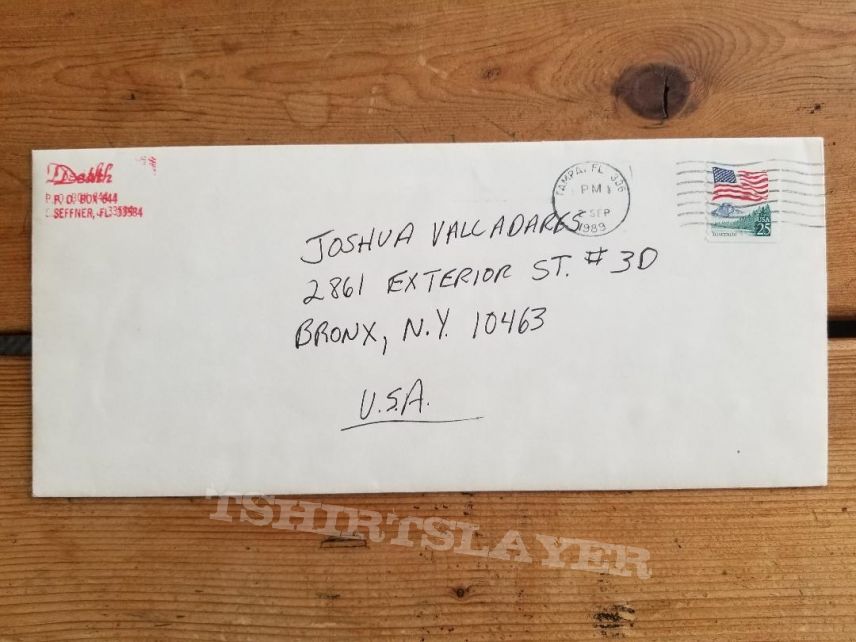 Death
P. O. BOX 644
SEFFNER, FL 33584
TAMPA, FL 336
PM
SEP
1989
USA
25
JOSHUA VALLADARES
2861 EXTERIOR ST. # 3D
BRONX, N.Y. 10463
U.S.A.
TSHIRTSLAYER